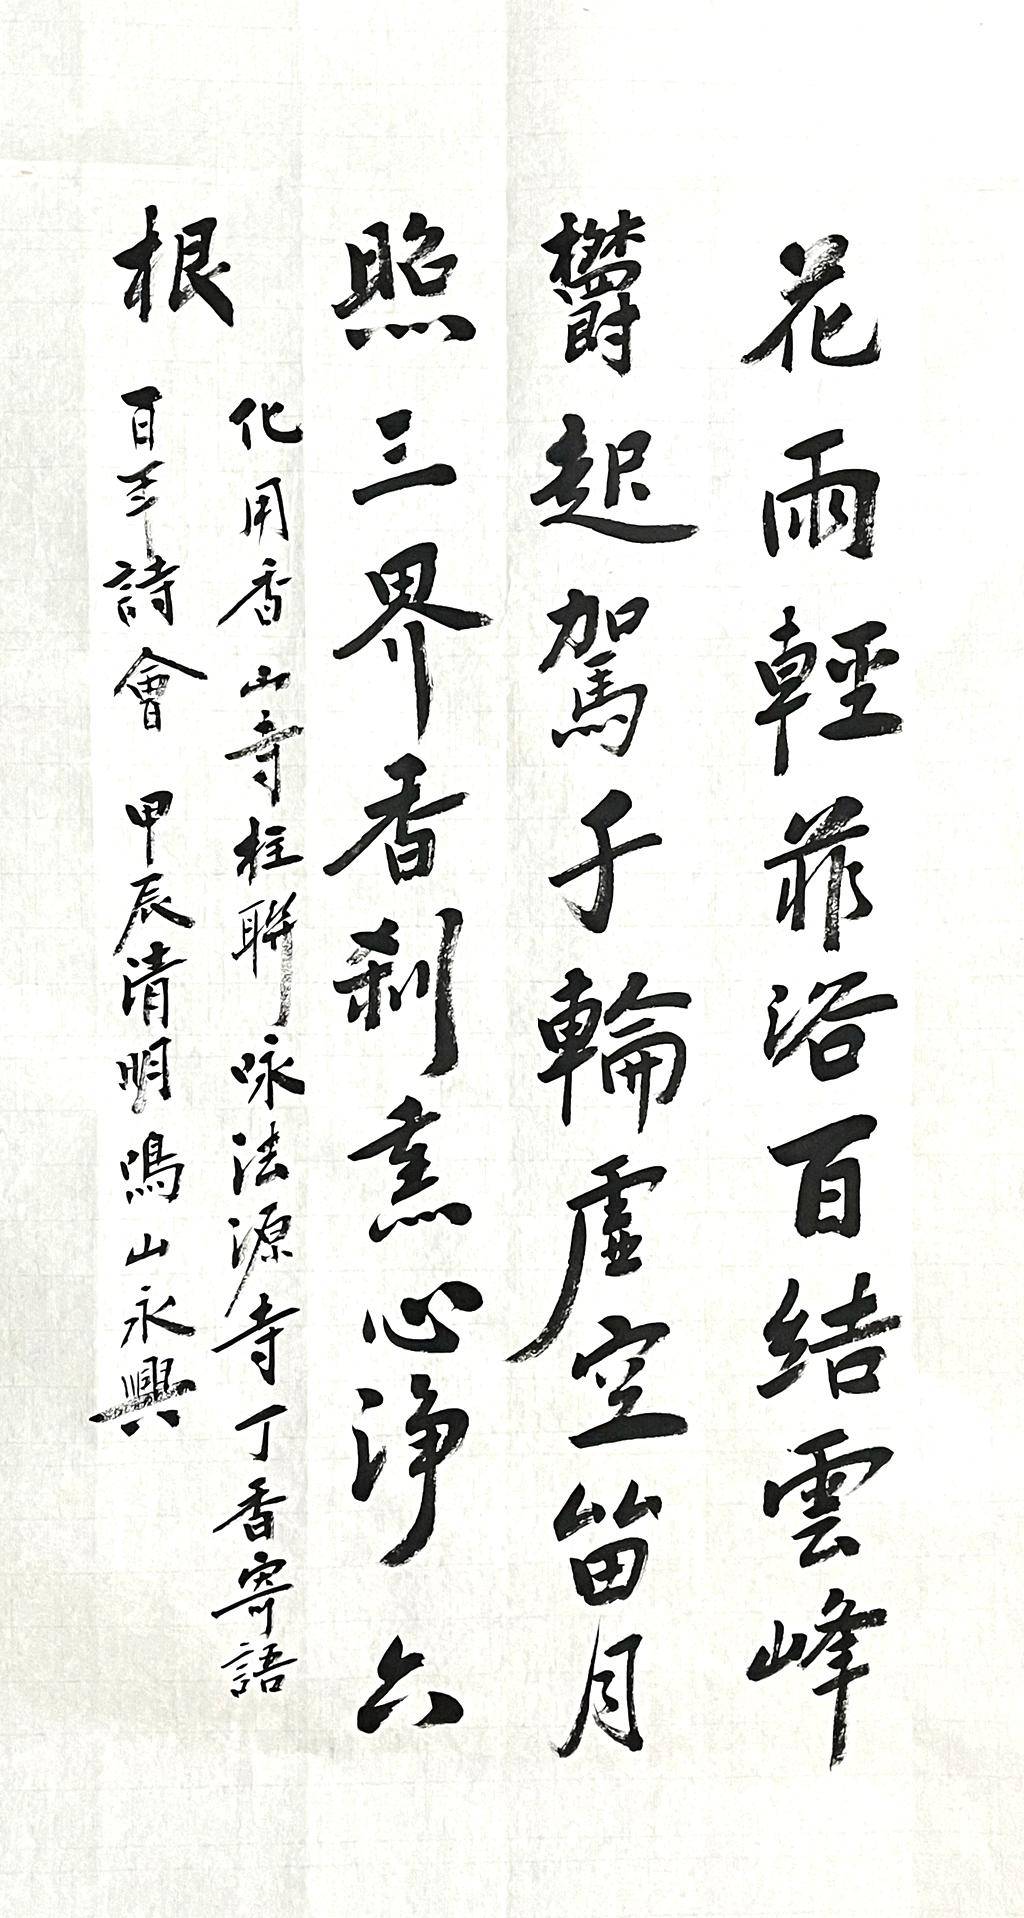 花雨輕菲浴百結雲峰
欝起駕千輪虛空留月
照三界香刹熏心淨六
根
化用香山寺柱聯咏法源寺丁香寄語
百年詩會 甲辰清明鳴山永興